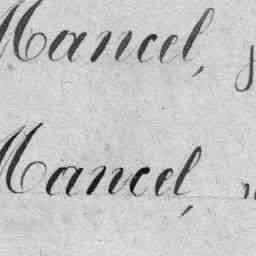 Mancel,
Mancel,